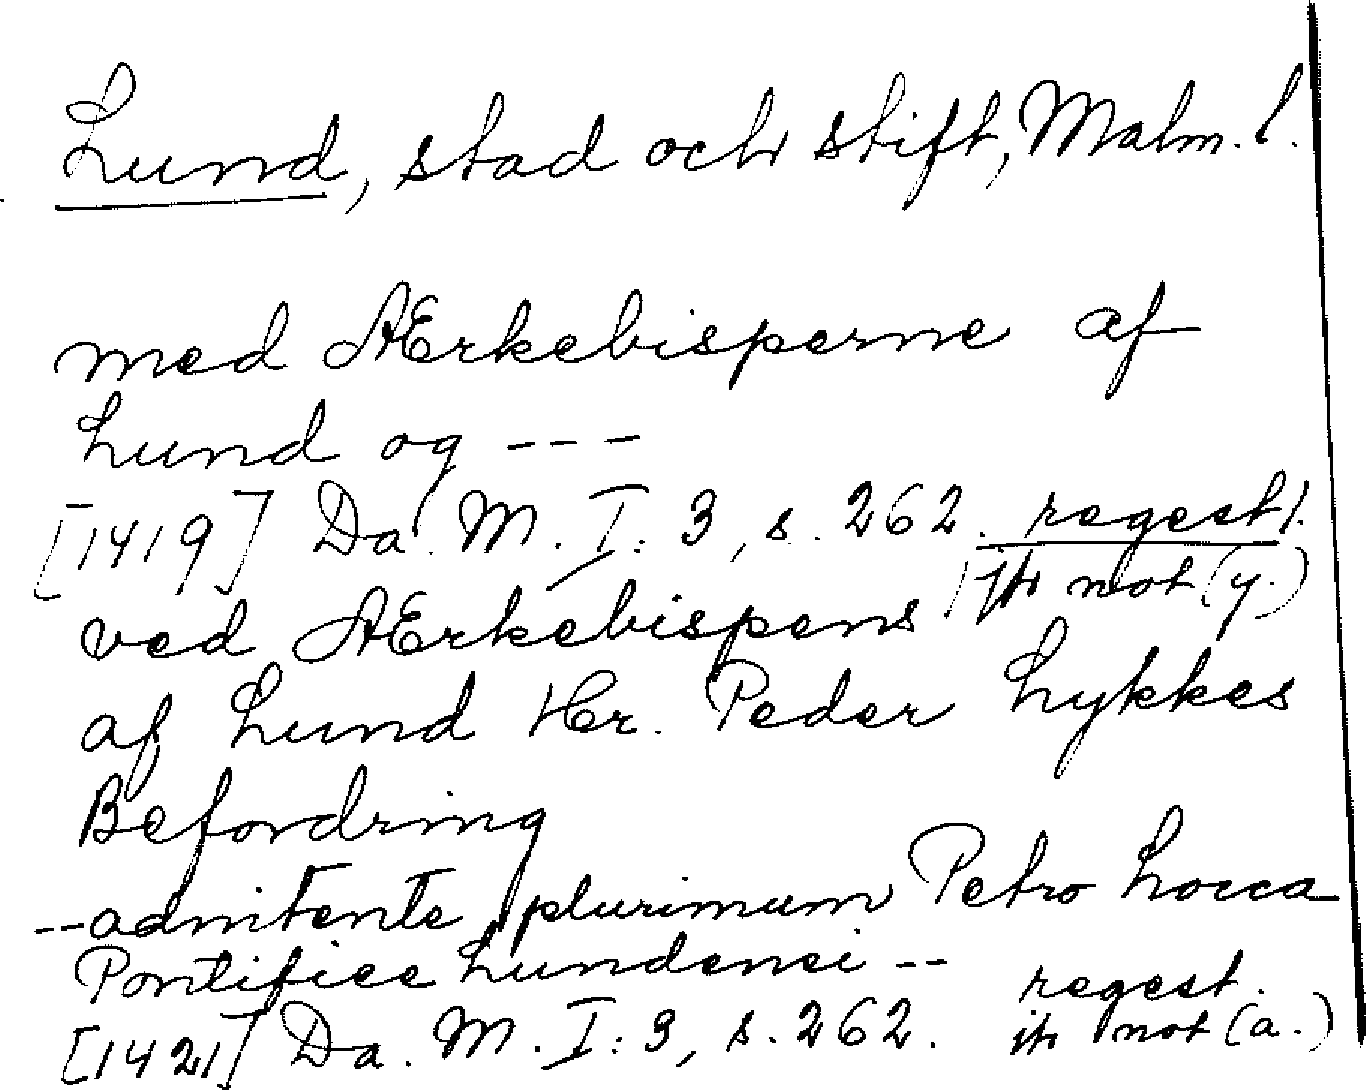 Lund, stad och stift, Malm. l.
med AErkebisperne af
Lund og ---
[1419] Da. M. I: 3, s. 262. regest.
not (y.)
ved AErkebispens
af Lund Hr. Peder Lykkes
Befordring
-- adnitente plurimum Petro Locca
Pontifice Lundensi --
regest.
[1421] Da. M. I: 3, s. 262. not (a.)